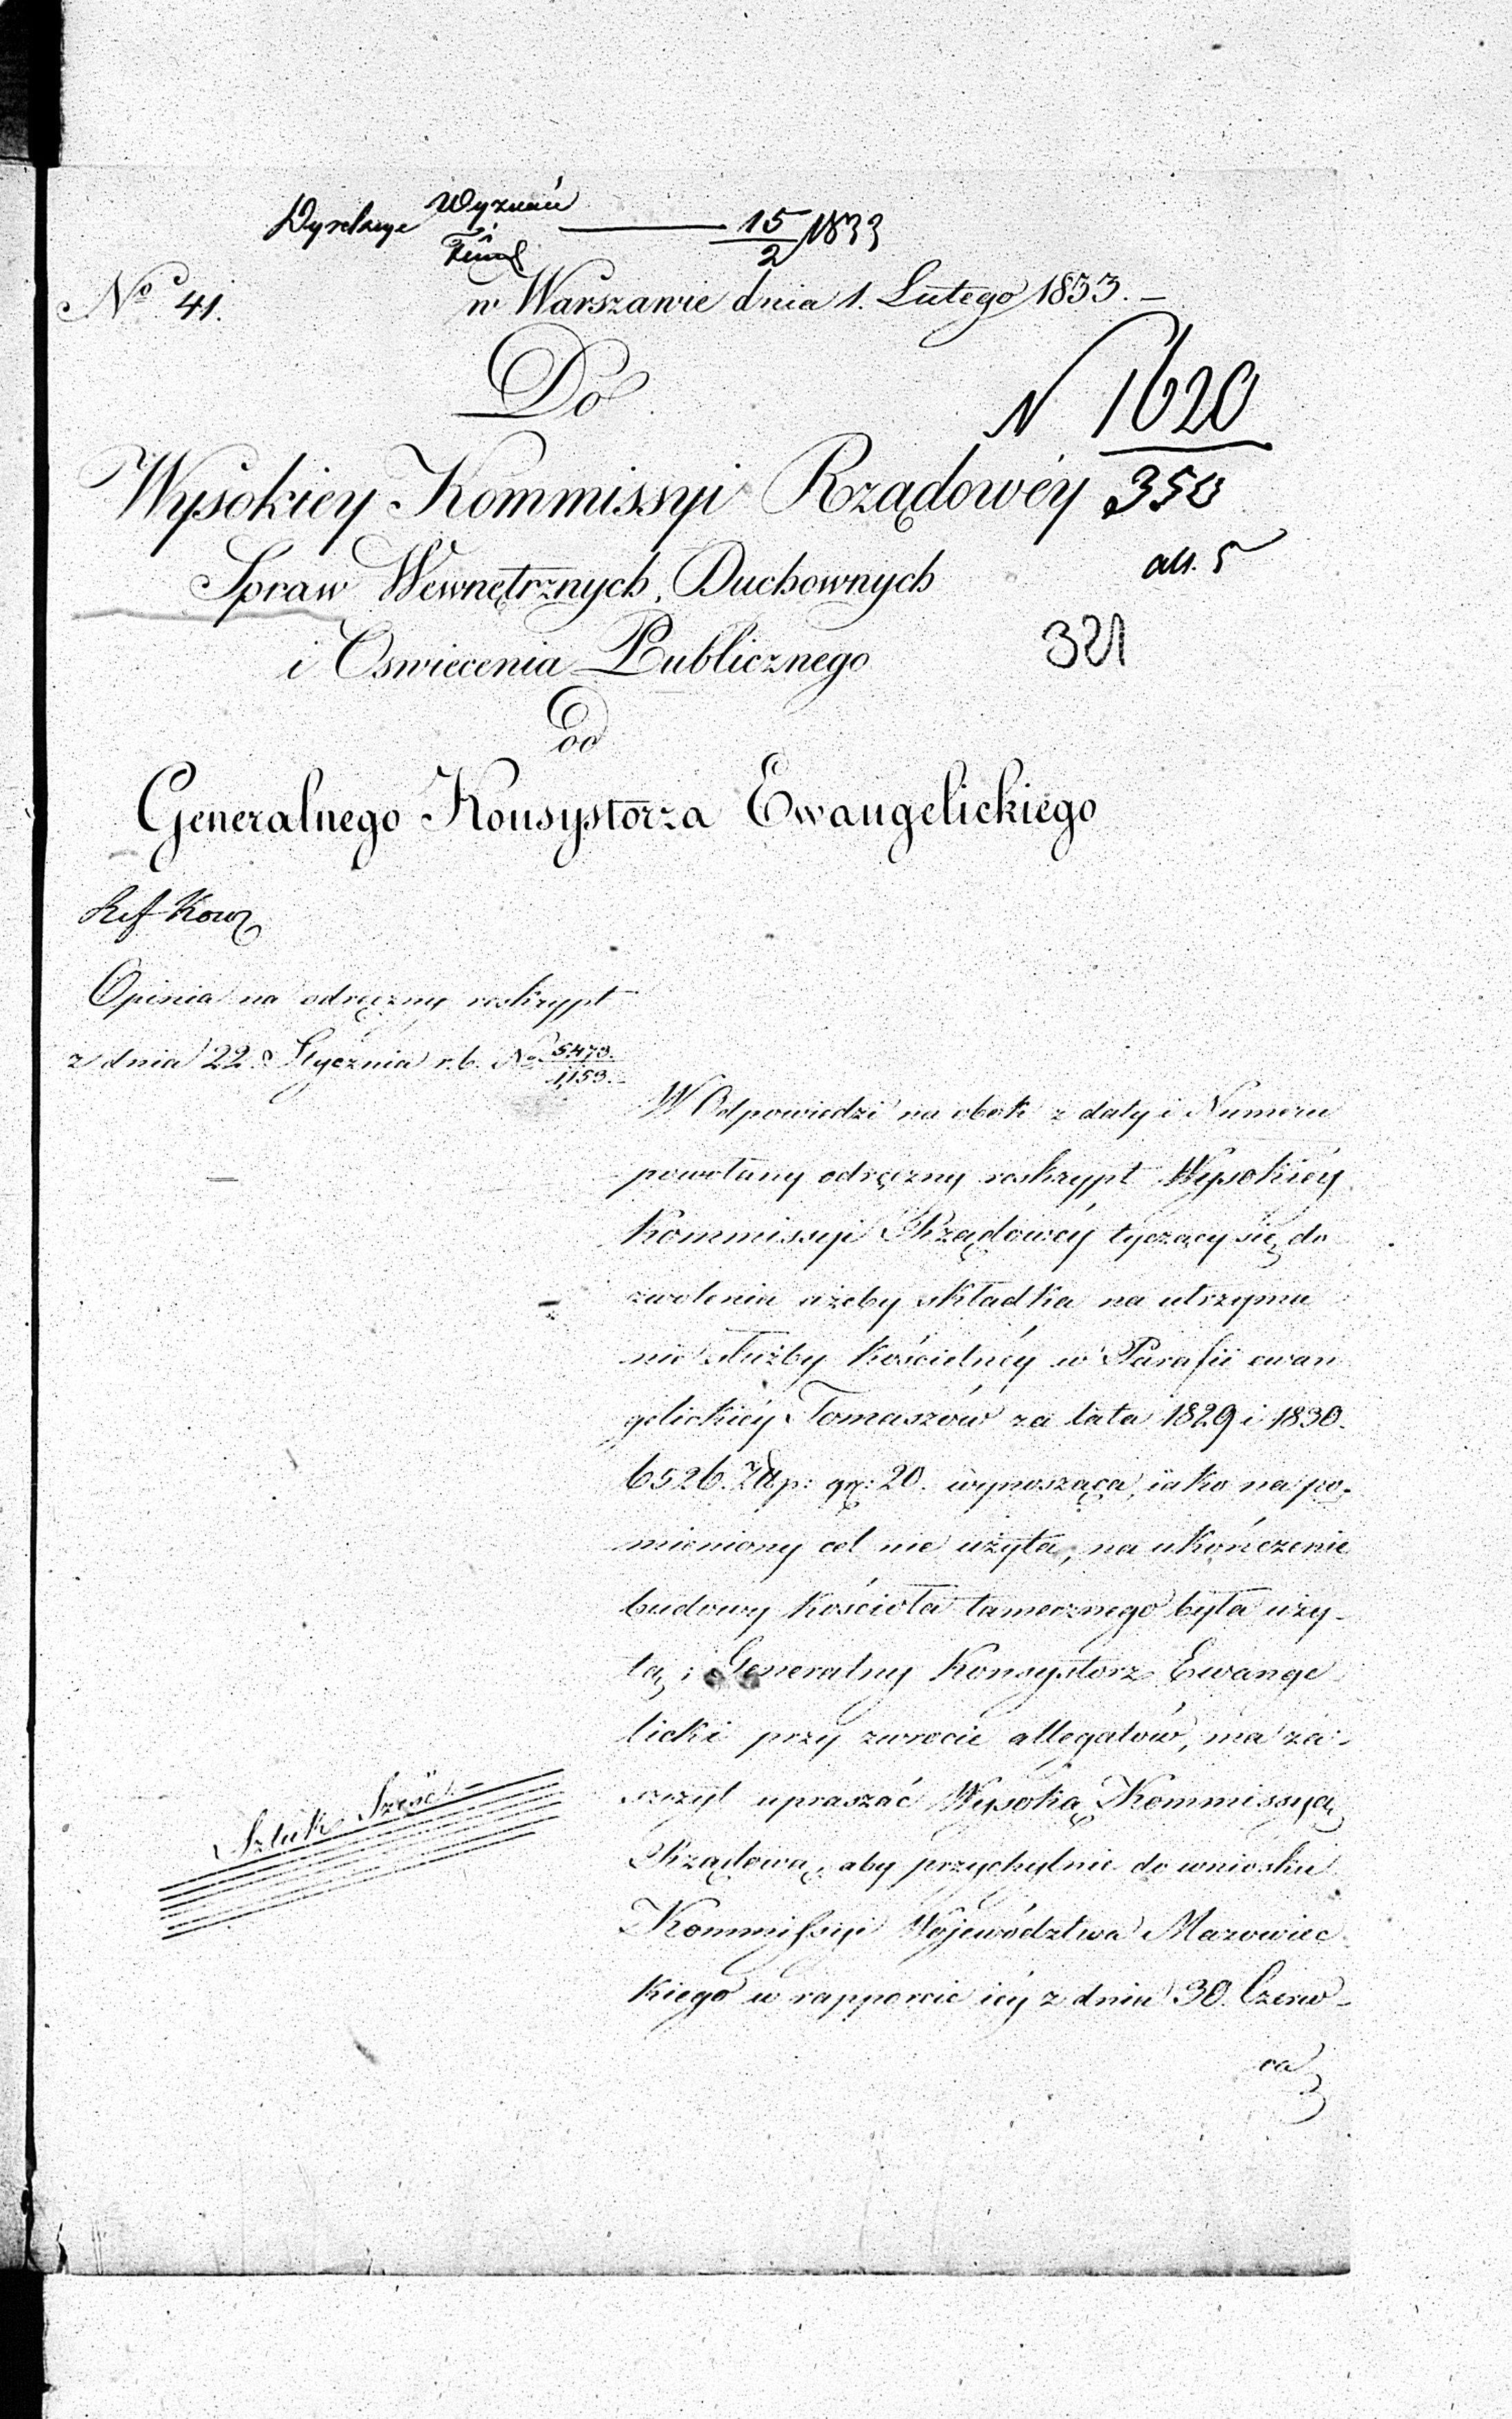 Wyznań
Dyrekcye 15/2 1833
No 41. w Warszawie dnia 1. Lutego 1833. –
Do
N 1620
Wysokiey Kommissyi Rządowéy 350
all. 5
Spraw Wewnętrznych, Duchownych
321
i Oswiecenia Publicznego
od
Generalnego Konsystorza Ewangelickiego
Opinia na odręczny reskrypt
z dnia 22. Stycznia r.b. No 5473./1,153.
W Odpowiedzi na obok z daty i Numeru
powołany odręczny reskrypt Wysokiéy
Kommissyi Rządowéy tyczący się do
zwolenia ażeby składka na utrzyma
nie służby kościelnéy w Parafii ewan
gelickiéy Tomaszów za lata 1829 i 1830.
6526. Złp: gr: 20. wynosząca, iako na po-
mieniony cel nie użyta, na ukończenie
budowy kościoła tamecznego była uży-
tą; Generalny Konsystorz Ewange
licki przy zwrocie allegatów, ma za-
szczyt upraszać Wysoką Kommissyą
Rządową, aby przychylnie do wniosku
Kommissyi Województwa Mazowiec
kiego w rapporcie iéy z dnia 30. Czerw-
ca
Sztuk Sześć –